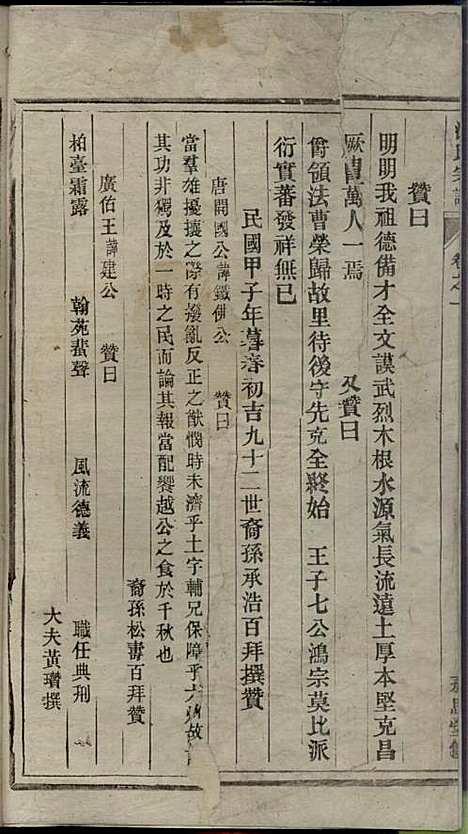 氏宗譜 卷之一
贊曰
明明我祖德備才全文謨武烈木根水源氣長流遠土厚本堅克昌
厥萬人一焉 又贊曰
爵領法曹榮歸故里待後守先克全終始 王子七公鴻宗莫比派
衍實蕃發祥無已
民國甲子年暮春初吉九十二世裔孫承浩百拜撰贊
唐開國公諱鐵佛公 贊曰
當羣雄擾攘之際有撥亂反正之猷憫時未濟乎土宇輔兄保障乎六州故
其功非獨及於一時之民而論其報當配饗越公之食於千秋也
裔孫松壽百拜贊
廣伯王諱建公 贊曰
柏臺霜露 翰苑蜚聲 風流德義 職任典刑
大夫黃瓚撰